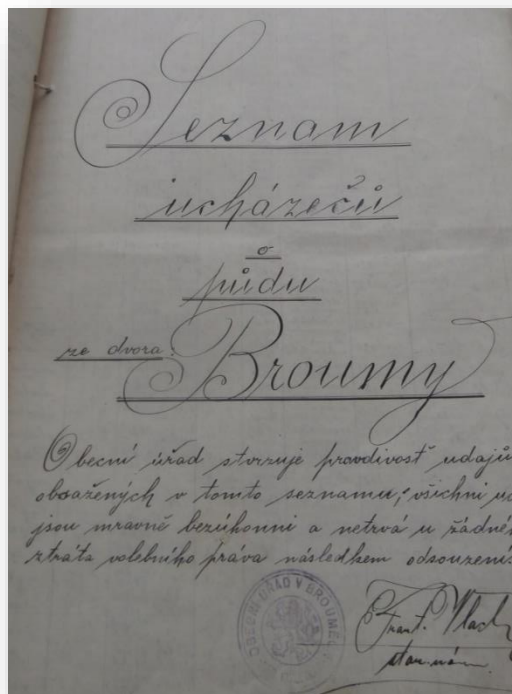 Seznam
ucházečů
o
půdu
ze dvora
Broumy
Obecní úřad stvrzuje pravdivosť udajů
obsažených v tomto seznamu; všichni uc
jsou mravně bezúhonni a netrvá u žádné
ztráta volebního práva následkem odsouzení.
OBECNÍ ÚŘAD V BROUMECH
Frant. Vlach
starosta